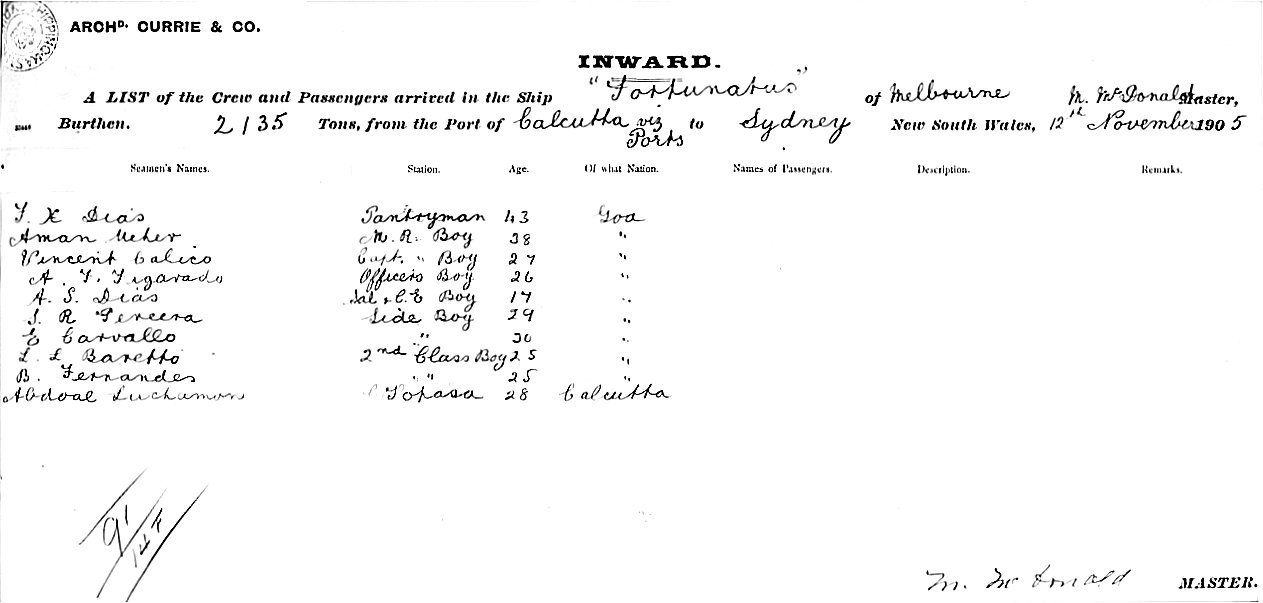 ARCHD. CURRIE & CO.
INWARD.
A LIST of the Crew and Passengers arrived in the Ship "Fortunatus" of Melbourne M. McDonald Master,
Burthen. 2135 Tons, from the Port of Calcutta via Ports to Sydney New South Wales, 12th November 1905
Seamen's Names. Station. Age. Of what Nation. Names of Passengers. Description. Remarks.
F. X Dias Pantryman 43 Goa
Aman Meher M. R. Boy 38 "
Vincent Calico Capt. " Boy 27 "
A. F. Figarado Officers Boy 26 "
A. S. Dias Sal & C. E Boy 17 "
J. R Pereera Side Boy 29 "
E Carvallo " 30 "
L. L Baretto 2nd Class Boy 25 "
B. Fernandes " " 25 "
Abdoal Luchamon Topasa 28 Calcutta
91
147
M. McDonald MASTER.